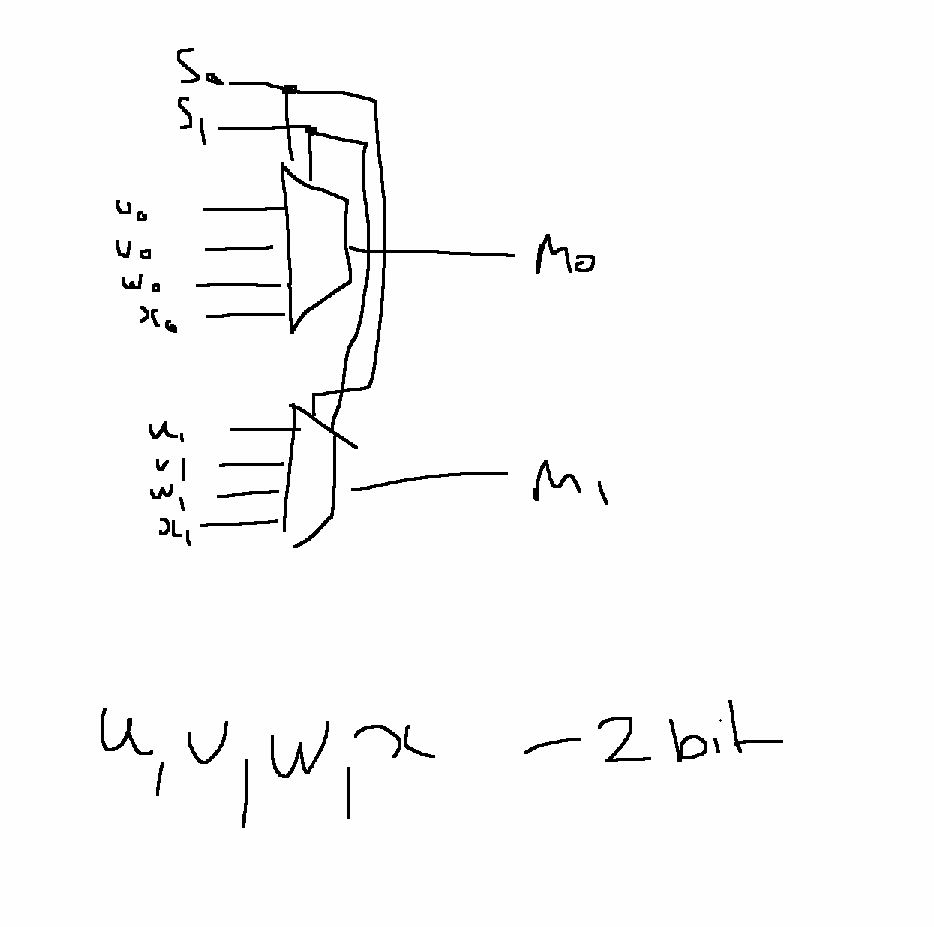 S0
S1
u0
v0
w0
x0
M0
u1
v1
w1
x1
M1
u, v, w, x - 2 bit